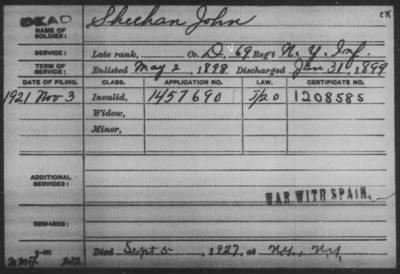 DEAD Sheehan John CK
NAME OF
SOLDIER:
SERVICE: Late rank, Co. D, 69 Reg't N. Y. Inf.
TERM OF
SERVICE: Enlisted May 2, 1898 Discharged Jan 31, 1899
DATE OF FILING. CLASS. APPLICATION NO. LAW. CERTIFICATE NO.
1921 Nov 3 Invalid, 1457690 1208585
Widow,
Minor,
ADDITIONAL
SERVICES:
WAR WITH SPAIN.
REMARKS:
Died Sept 5, 1927, at N.Y., N.Y.